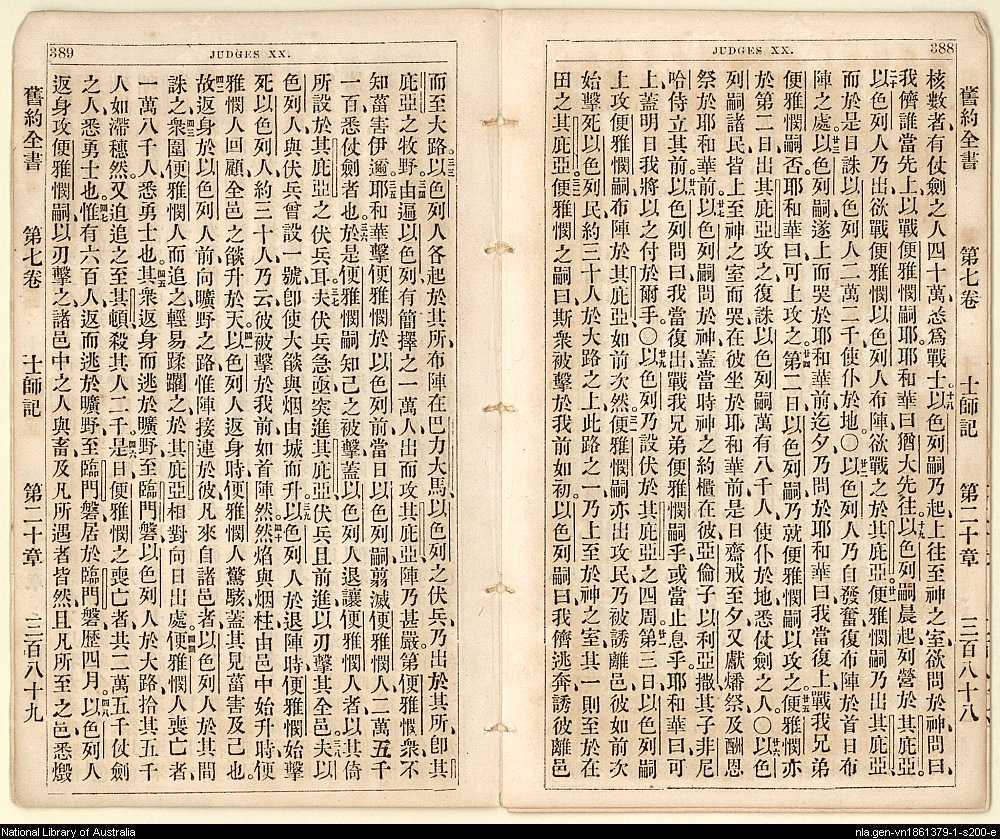 JUDGES XX.
388
舊約全書 第七卷 士師記 第二十章 三百八十八
核數者、有仗劍之人四十萬、悉爲戰士。十八以色列嗣乃起上往至神之室欲問於神、問曰、
我儕誰當先上以戰便雅憫嗣耶。耶和華曰、猶大先往。十九以色列嗣晨起、列營於其庇亞。
二十以色列人乃出、欲戰便雅憫、以色列人布陣、欲戰之於其庇亞。廿一便雅憫嗣乃出其庇亞、
而於是日誅以色列人二萬二千、使仆於地。○廿二以色列人乃自發奮、復布陣、於首日布
陣之處。廿三以色列嗣遂上而哭於耶和華前迄夕、乃問於耶和華曰、我當復上戰我兄弟
便雅憫嗣否。耶和華曰、可上攻之。廿四第二日以色列嗣乃就便雅憫嗣以攻之。廿五便雅憫亦
於第二日出其庇亞攻之、復誅以色列嗣萬有八千人、使仆於地、悉仗劍之人。○廿六以色
列嗣諸民皆上至神之室而哭、在彼坐於耶和華前、是日齋戒至夕、又獻燔祭及酬恩
祭於耶和華前。廿七以色列嗣問於神、蓋當時神之約櫃在彼、廿八亞倫子以利亞撒其子非尼
哈侍立其前、以色列問曰、我當復出戰我兄弟便雅憫嗣乎、或當止息乎。耶和華曰、可
上、蓋明日我將以之付於爾手。○廿九以色列乃設伏於其庇亞之四周。三十第三日以色列嗣
上攻便雅憫嗣、布陣於其庇亞、如前次然。三一便雅憫嗣亦出攻民、乃被誘離邑、彼如前次
始擊死以色列民約三十人於大路之上、此路之一乃上至於神之室、其一則至於在
田之其庇亞。三二便雅憫之嗣曰、斯衆被擊於我前如初。以色列嗣曰、我儕逃奔、誘彼離邑
JUDGES XX.
389
而至大路。三三以色列人各起於其所、布陣在巴力大馬、以色列之伏兵、乃出於其所、卽其
庇亞之牧野。三四由遍以色列有簡擇之一萬人、出而攻其庇亞、陣乃甚嚴、第便雅憫衆不
知菑害伊邇。三五耶和華擊便雅憫於以色列前、當日以色列嗣翦滅便雅憫人二萬五千
一百、悉仗劍者也。三六於是便雅憫嗣知己之被擊、蓋以色列人退讓便雅憫人者、以其倚
所設於其庇亞之伏兵耳。三七夫伏兵急亟突進其庇亞、伏兵且前進以刃擊其全邑。三八夫以
色列人與伏兵曾設一號、卽使大燄與烟由城而升。三九以色列人於退陣時、便雅憫始擊
死以色列人約三十人、乃云、彼被擊於我前如首陣然。四十然焰與烟柱由邑中始升時、便
雅憫人回顧、全邑之燄升於天。四一以色列人返身時、便雅憫人驚駭、蓋其見菑害及己也。
四二故返身於以色列人前、向曠野之路、惟陣接連於彼、凡來自諸邑者、以色列人於其間
誅之。四三衆圍便雅憫人而追之、輕易蹂躙之、於其庇亞相對向日出處。四四便雅憫人喪亡者、
一萬八千人、悉勇士也。四五其衆返身而逃於曠野、至臨門磐、以色列人於大路拾其五千
人如滯穗然、又追迫之至其頓、殺其人二千。四六是日便雅憫之喪亡者、共二萬五千仗劍
之人、悉勇士也。四七惟有六百人返而逃於曠野、至臨門磐、居於臨門磐歷四月。四八以色列人
返身攻便雅憫嗣、以刃擊之、諸邑中之人與畜、及凡所遇者皆然、且凡所至之邑悉燬
舊約全書 第七卷 士師記 第二十章 三百八十九
National Library of Australia
nla.gen-vn1861379-1-s200-e